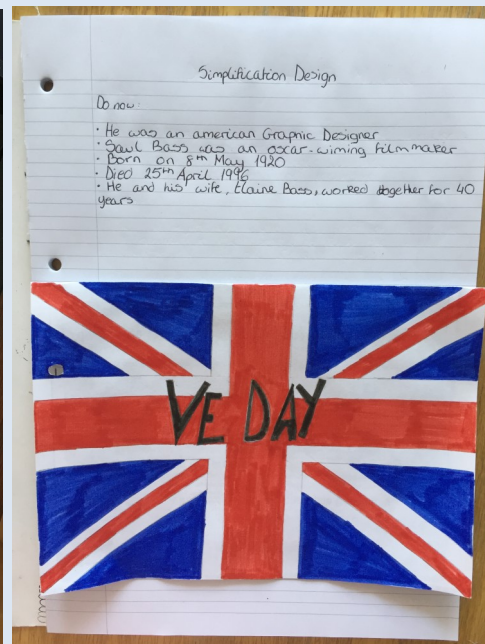 Simplification Design
Do now:
• He was an american Graphic Designer
• Saul Bass was an oscar-wiming filmmaker
• Born on 8th May 1920
• Died 25th April 1996
• He and his wife, Elaine Bass, worked together for 40
years
VE DAY